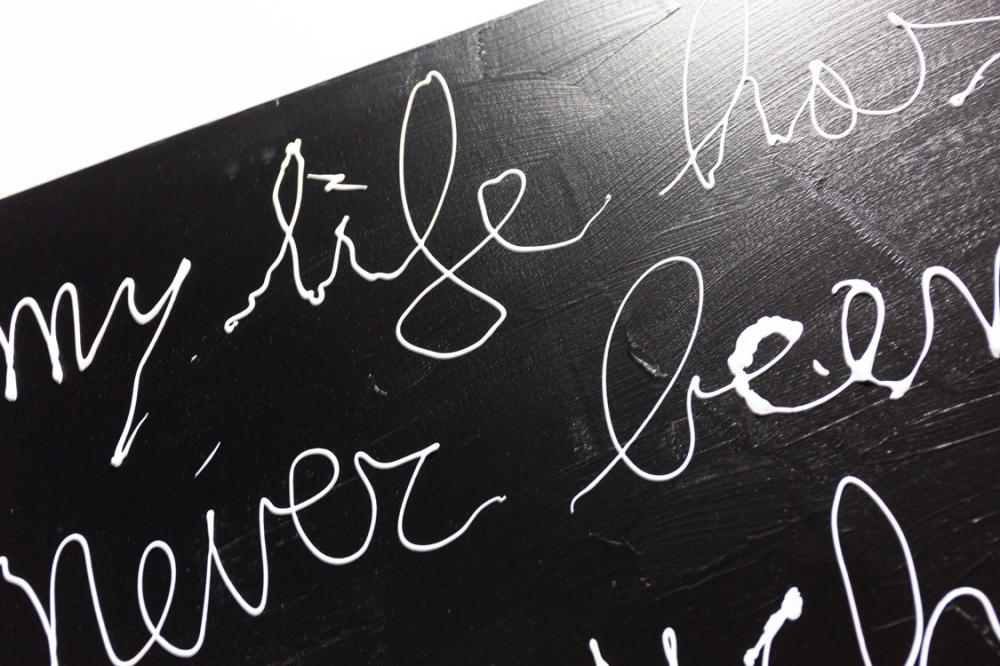 my life has
never been